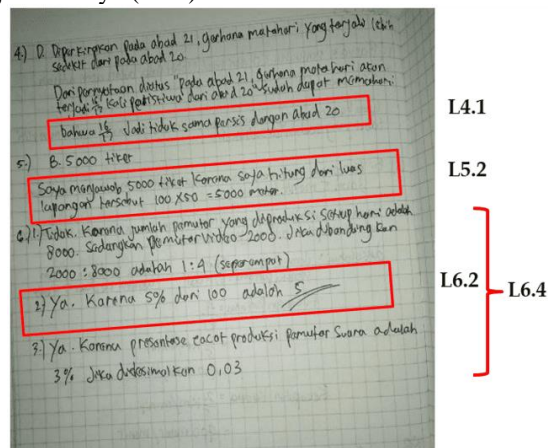 4.) D. Diperkirakan pada abad 21, gerhana matahari yang terjadi lebih
sedikit dari pada abad 20
Dari pernyataan diatas "Pada abad 21, gerhana matahari akan
terjadi kali peristiwa dari abad 20" sudah dapat memahami
bahwa Jadi tidak sama persis dengan abad 20
L4.1
5.) B. 5000 tiket
Saya menjawab 5000 tiket karena saya hitung dari luas
lapangan tersebut 100 x 50 = 5000 meter.
L5.2
6.) 1.) Tidak. Karena jumlah pemutar yang diproduksi setiap hari adalah
8000. Sedangkan pemutar video 2000. Jika dibandingkan
2000 : 8000 adalah 1 : 4 (seperempat)
2.) Ya. Karena 5% dari 100 adalah 5
L6.2
L6.4
3.) Ya. Karena presentase cacat produksi pemutar suara adalah
3% Jika didesimalkan 0,03